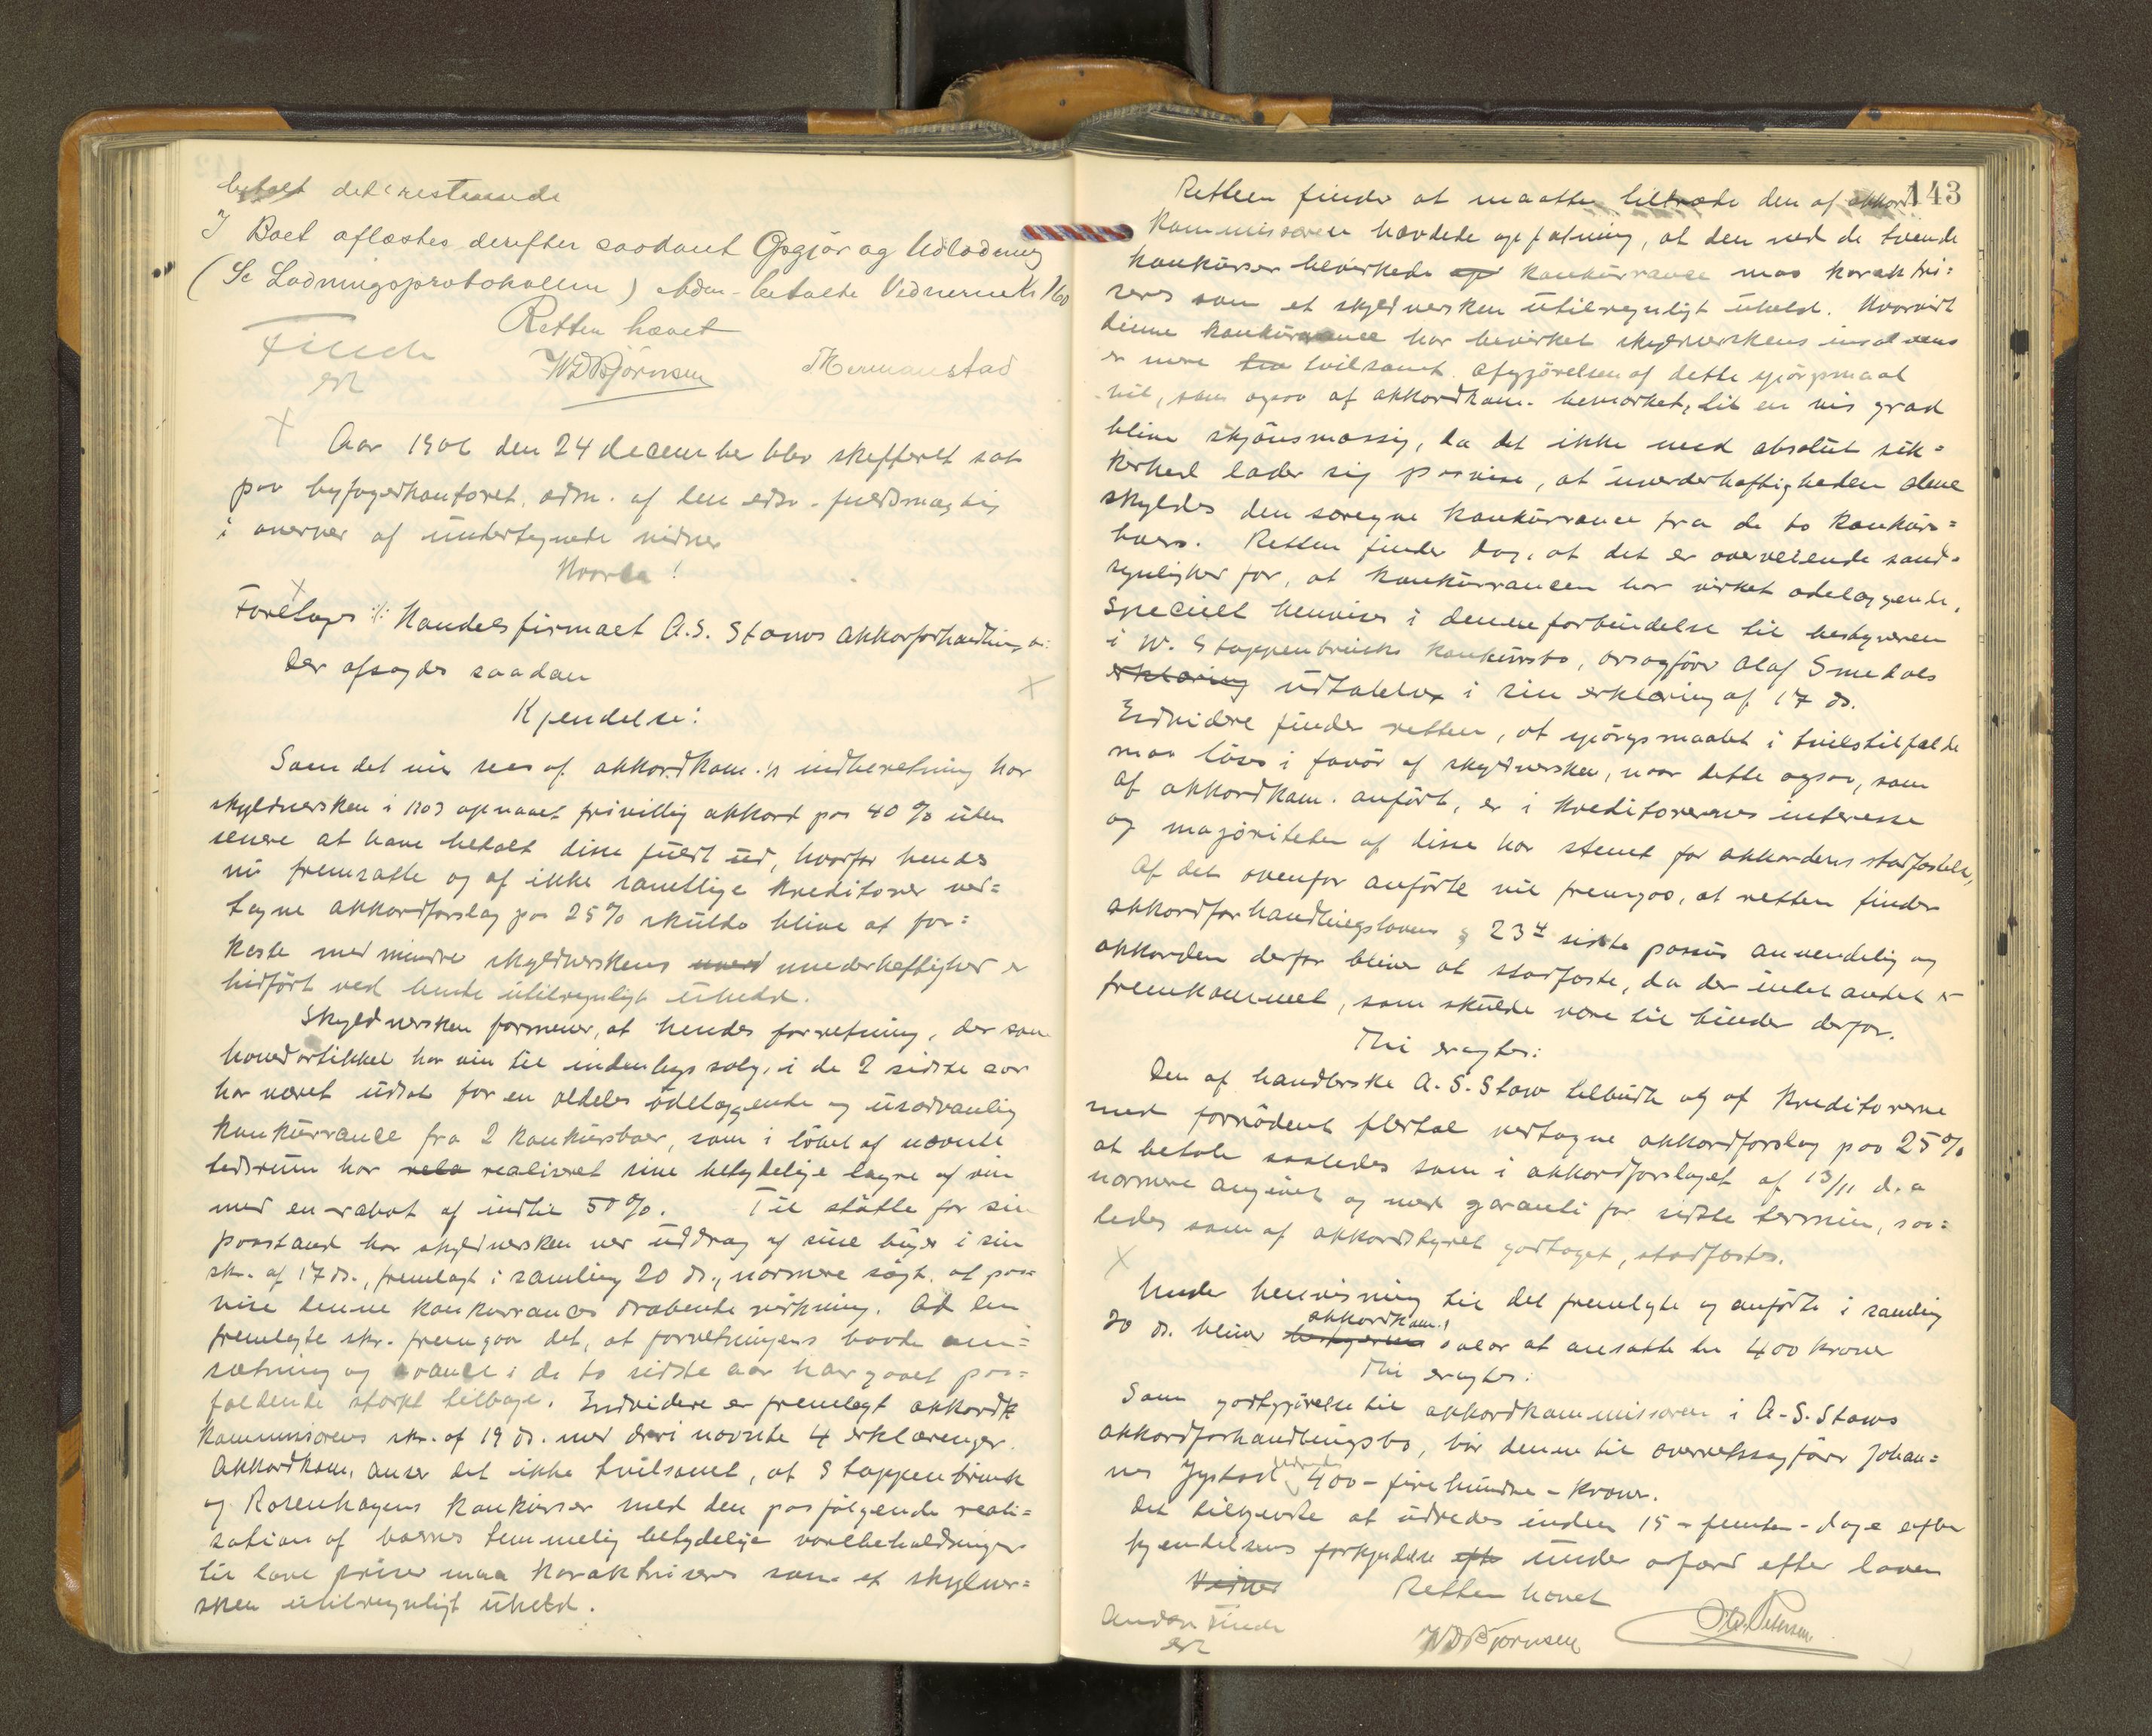 betalt det resterende
I Boet aflæstes derefter saadant Opgjør og Udlodning
(Se Lodningsprotokollen) Adm. betalte Vidnerne Kr 1,60
Retten hævet
Finde
est
WDBjörnsen
Hermanstad
Aar 1906 den 24 december blev skifteret sat
paa byfogedkontoret, adm. af den edsv. fuldmægtig
i overvær af undertegnede vidner
Hvorda!
Foretages i: Handelsfirmaet A.S. Staws akkordforhandlingsbo:
Der afsagdes saadan
Kjendelse:
Som det nu sees af akkordkom.'s indberetning har
skyldnersken i 1903 opnaaet frivillig akkord paa 40 % uten
senere at have betalt disse fuldt ud, hvorfor hendes
nu fremsatte og af ikke samtlige kreditorer ved=
tagne akkordforslag paa 25% skulde blive at for=
kaste med mindre skyldnerskens uverderheftighed er
hidført ved hende utilregnligt uheld.
Skyldnersken formener, at hendes forretning, der som
hovedartikkel har vin til indenbys salg, i de 2 sidste aar
har været udsat for en aldeles ödelæggende og usædvanlig
konkurrance fra 2 konkursboer, som i löbet af nævnte
tidsrum har rela realiseret sine betydelige lagre af vin
med en rabat af indtil 50%. Til støtte for sin
paastand har skyldnersken ved uddrag af sine böger i sin
skr. af 17 ds., fremlagt i samling 20 ds., nærmere søgt at paa=
vise denne konkurrances dræbende virkning. Ad den
fremlagte skr. fremgaar det, at forretningens baade om=
sætning og avance i de to sidste aar har gaaet paa=
faldende stærkt tilbage. Endvidere er fremlagt akkordk
kommissærens skr. af 19 ds. med deri nævnte 4 erklæringer.
Akkordkom. anser det ikke tvilsomt, at Stoppenbrink
og Rosenhagens konkurser med den paafølgende reali=
sation af boernes temmelig betydelige varebeholdninger
til lave priser maa karaktriseres som et skyldner=
sken utilregnligt uheld.
143
Retten finder at maatte tiltræde den af akkord
kommissæren hævdede opfatning, at den ved de tvende
konkurser bevirkede op konkurrance maa karaktri=
seres som et skyldnersken utilregnligt uheld. Hvorvidt
denne konkurrance har bevirket skyldnerskens insolvens
er mere tvilsomt. Afgjörelsen af dette spörgsmaal
vil, som ogsaa af akkordkom. bemærket, til en vis grad
blive skjönsmæssig, da det ikke med absolut sik=
kerhed lader sig paavise, at uverderheftigheden alene
skyldes den særegne konkurrance fra de to konkurs=
boer. Retten finder dog, at det er overveiende sand=
synlighed for, at konkurrancen har virket ødelæggende,
specielt henvises i denne forbindelse til bestyreren
i W. Stoppenbrinks konkursbo, orsagfører Olaf Smedals
erklæring udtalelse i sin erklæring af 17 ds.
Endvidere finder retten, at spörgsmaalet i tvilstilfælde
maa löses i favör af skyldnersken, naar dette ogsaa, som
af akkordkom. anført, er i kreditorernes interesse
og majoriteten af disse har stemt for akkordens stadfæstelse,
Af det ovenfor anførte vil fremgaa, at retten finder
akkordforhandlingslovens § 23 4 sidste passus anvendelig og
akkorden derfor bliver at stadfæste, da der intet andet er
fremkommet, som skulde være til hinder derfor.
Thi eragtes:
Den af handlerske A.S. Staw tilbudte og af kreditorerne
med fornödent flertal vedtagne akkordforslag paa 25%
at betale saaledes som i akkordforslaget af 13/11 d.a
nærmere angivet og med garanti for sidste termin, saa=
ledes som af akkordstyret godtaget, stadfæstes.
Under henvisning til det fremlagte og anförte i samling
20 ds. bliver bestyrerens akkordkom.'s salær at ansætte til 400 kroner
Thi eragtes:
Som godtgjörelse til akkordkommissæren i A.S. Staws
akkordforhandlingsbo, bör denne til overretssagförer Johan=
nes Jystad udrede 400 - fire hundre - kroner.
Det tilkjendte at udredes inden 15 - femten - dage efter
kjendelsens forkyndelse efter under adfærd efter loven
Vidner
Retten hævet
Andor Finde
est
WDBjörnsen
Petersen